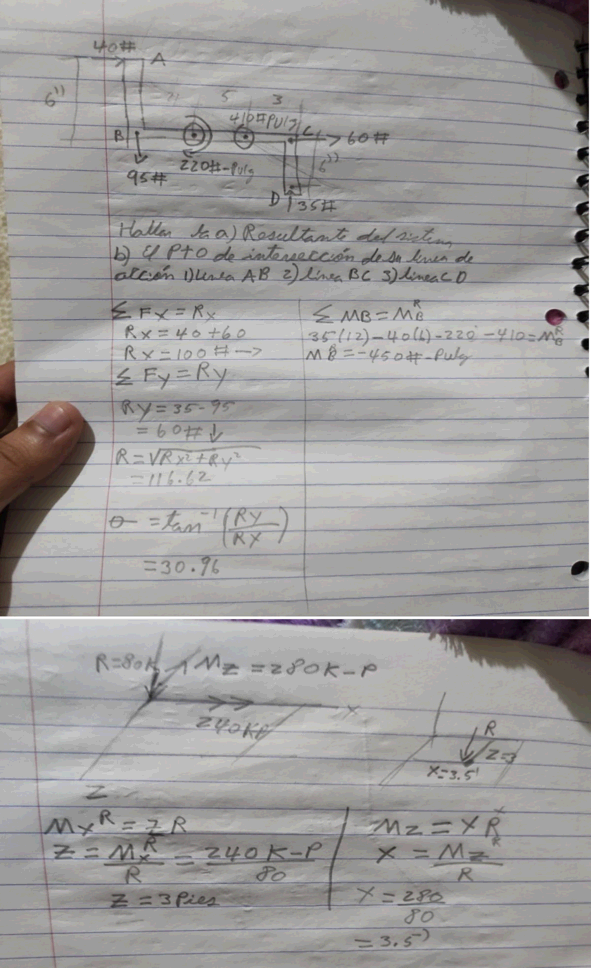 40#
A
6"
5
3
410#Pulg
B
C
60#
220#-Pulg
6"
95#
D
35#
Hallar la a) Resultante del sistema
b) El Pto de intersección de su linea de
acción 1) linea AB 2) linea BC 3) linea CD
Σ Fx = Rx
Rx = 40+60
Rx = 100# →
Σ Fy = Ry
Ry = 35-95
= 60# ↓
R = √Rx²+Ry²
= 116.62
θ = tan⁻¹ (Ry/Rx)
= 30.96
Σ MB = MBᴿ
35(12)-40(6)-220-410 = MBᴿ
MBᴿ = -450#-Pulg
R=80K
Mz = 280K-P
X
240KP
Z
R
Z=3
X=3.5'
Mxᴿ = ZR
Z = Mxᴿ/R = 240K-P/80
Z = 3 Pies
Mz = XR
X = Mz/R
X = 280/80
= 3.5'